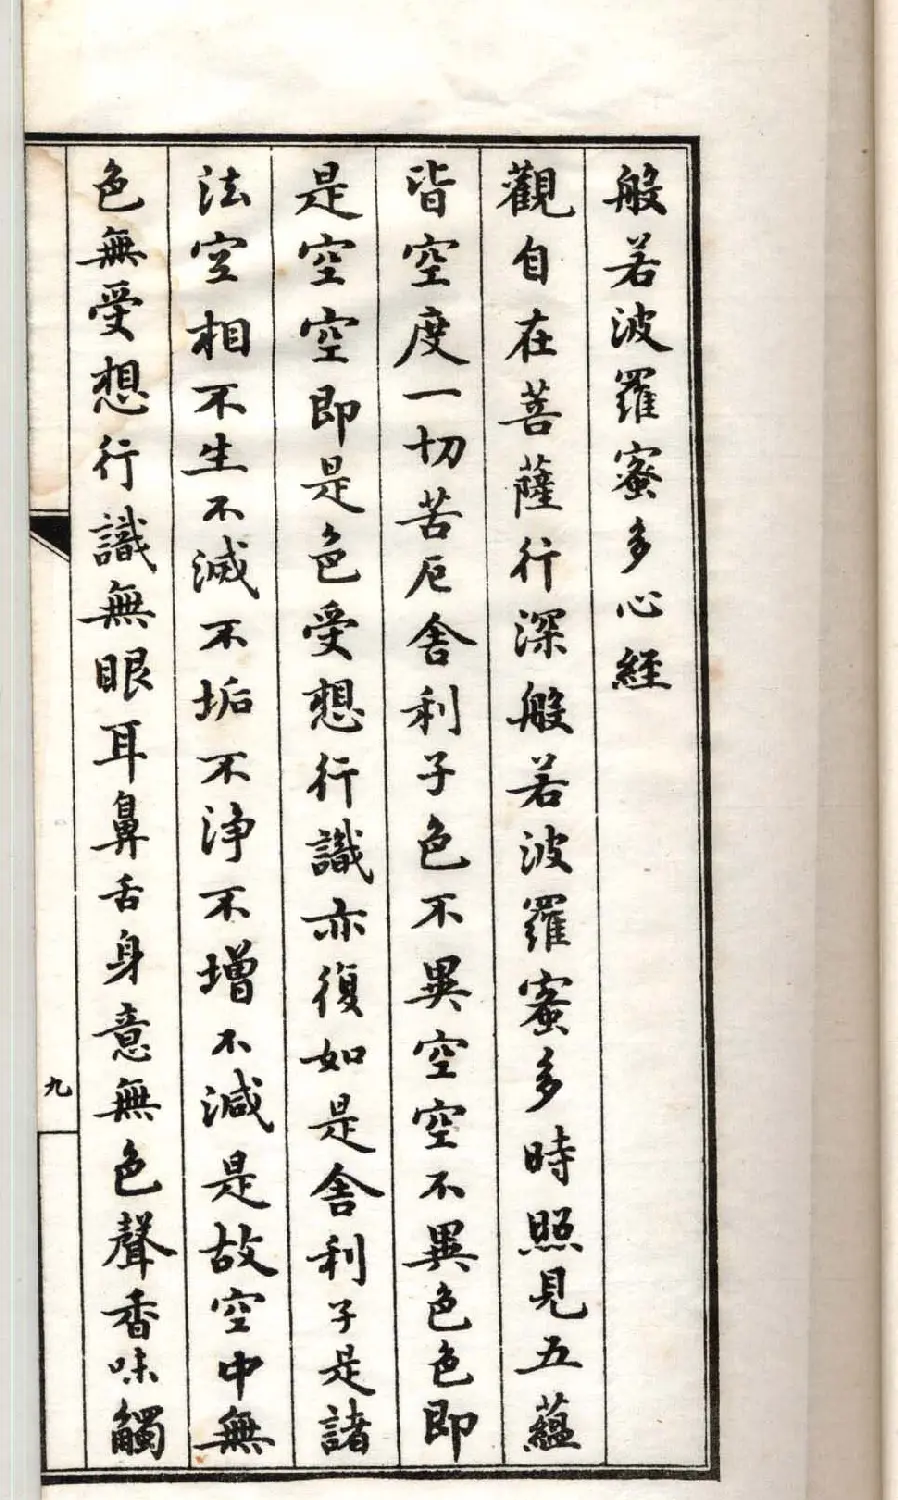 般若波羅蜜多心經
觀自在菩薩行深般若波羅蜜多時照見五蘊
皆空度一切苦厄舍利子色不異空空不異色色即
是空空即是色受想行識亦復如是舍利子是諸
法空相不生不滅不垢不淨不增不減是故空中無
色無受想行識無眼耳鼻舌身意無色聲香味觸
九